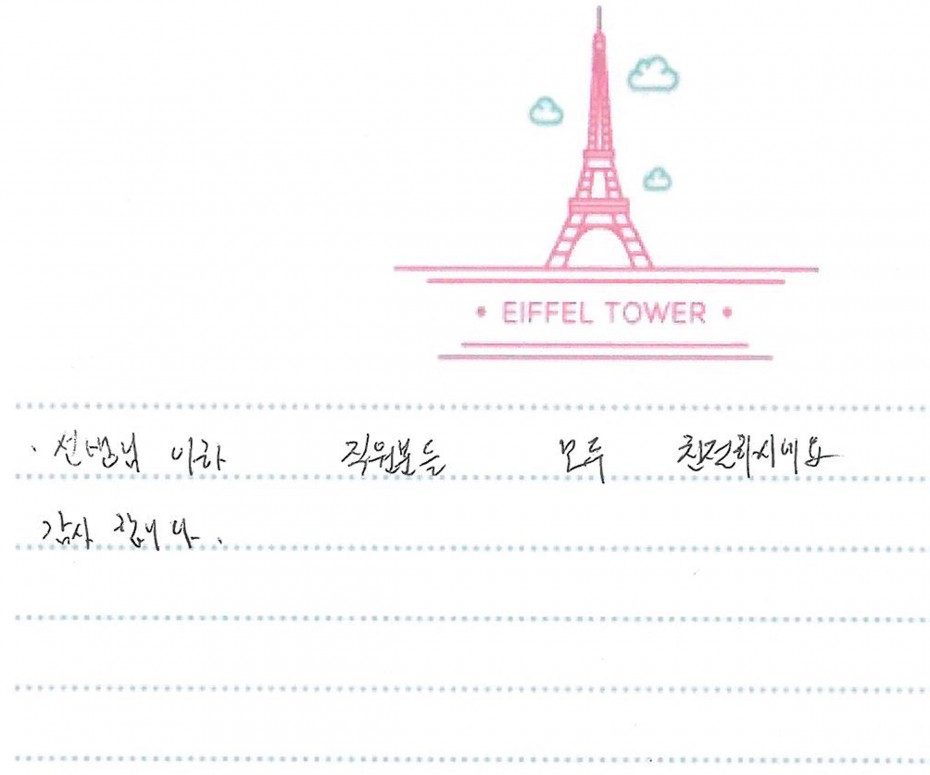 • EIFFEL TOWER •
· 선생님 이하 직원분들 모두 친절하시네요
감사 합니다.